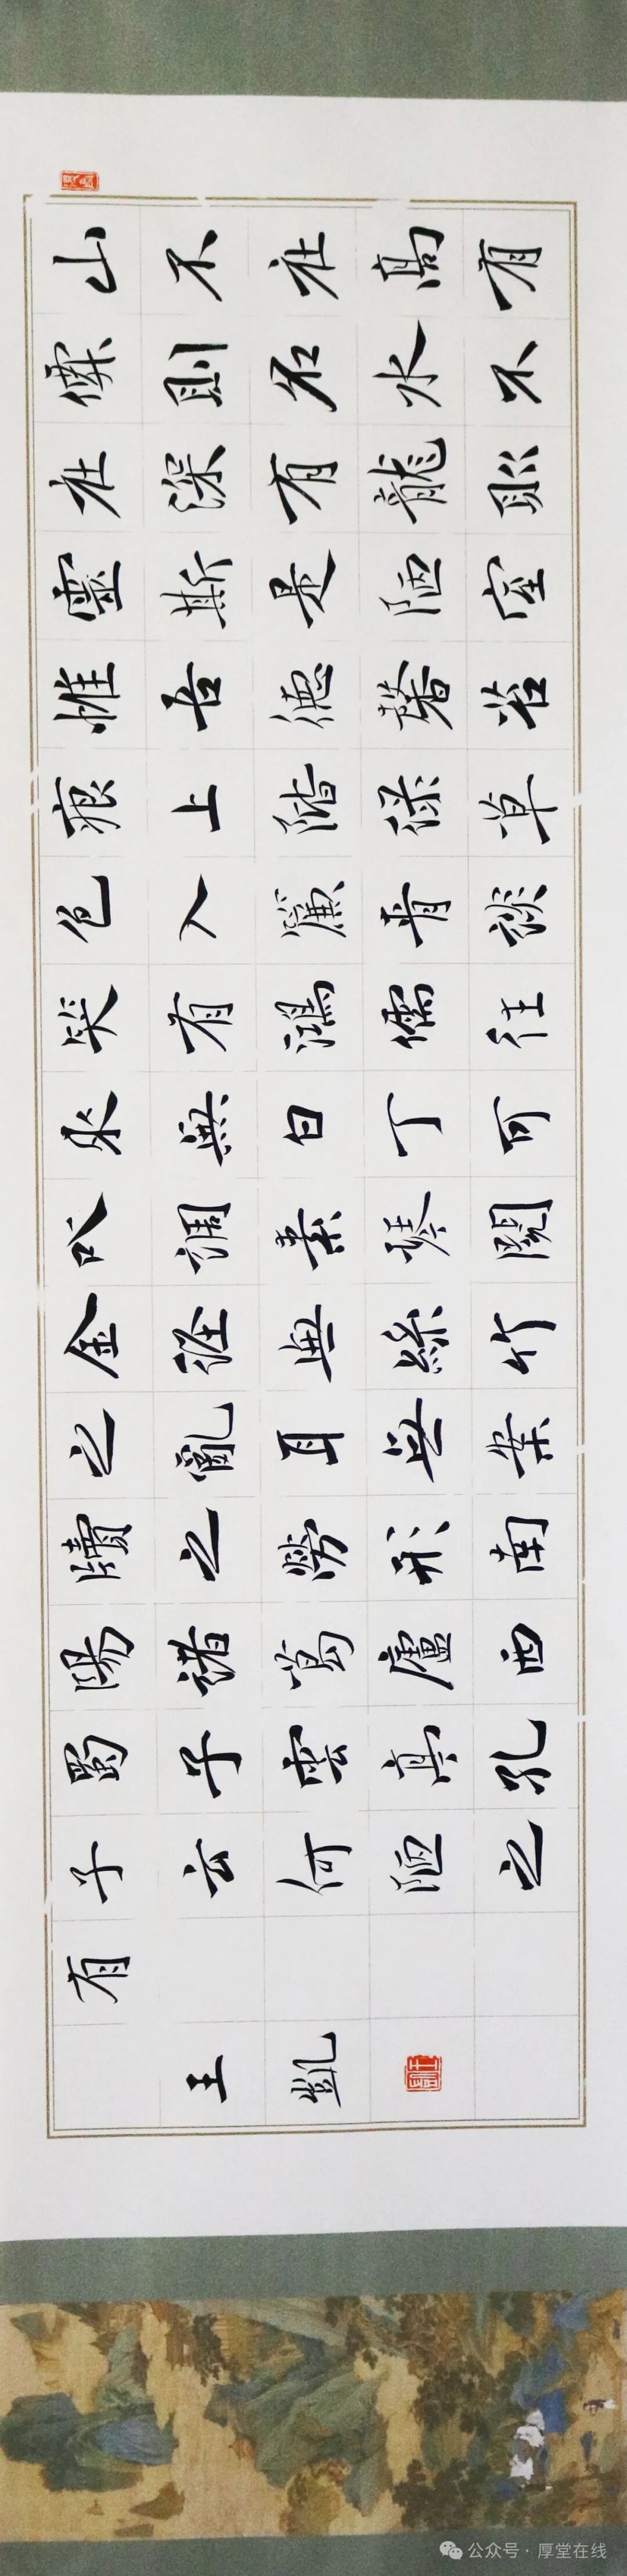 山不在高有
僊則名水不
在深有龍則
靈斯是陋室
惟吾德馨苔
痕上階緑草
色入簾青談
笑有鴻儒往
來無白丁可
以調素琴閱
金經無絲竹
之亂耳無案
牘之勞形南
陽諸葛廬西
蜀子雲亭孔
子云何陋之
有
王凱
公众号·厚堂在线